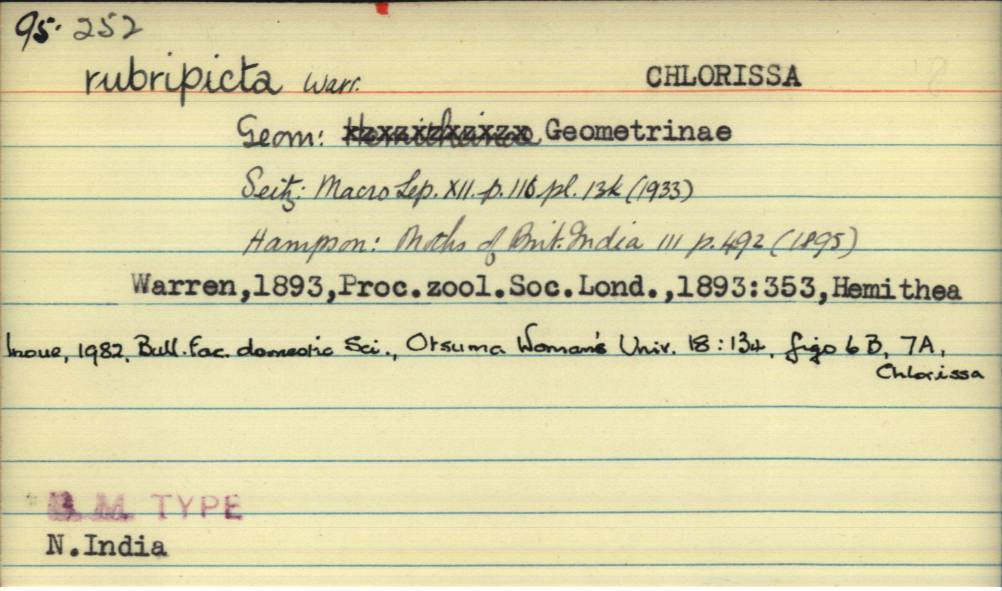 95. 252
rubripicta Warr. CHLORISSA
Geom: Hemitheinae Geometrinae
Seitz: Macro Lep. XII. p. 116 pl. 13k (1933)
Hampson: Moths of Brit. India III p. 492 (1895)
Warren,1893,Proc.zool.Soc.Lond.,1893:353,Hemithea
Inoue, 1982, Bull. Fac. domestic Sci., Otsuma Woman's Univ. 18:134, figs 6B, 7A,
Chlorissa
B.M. TYPE
N.India